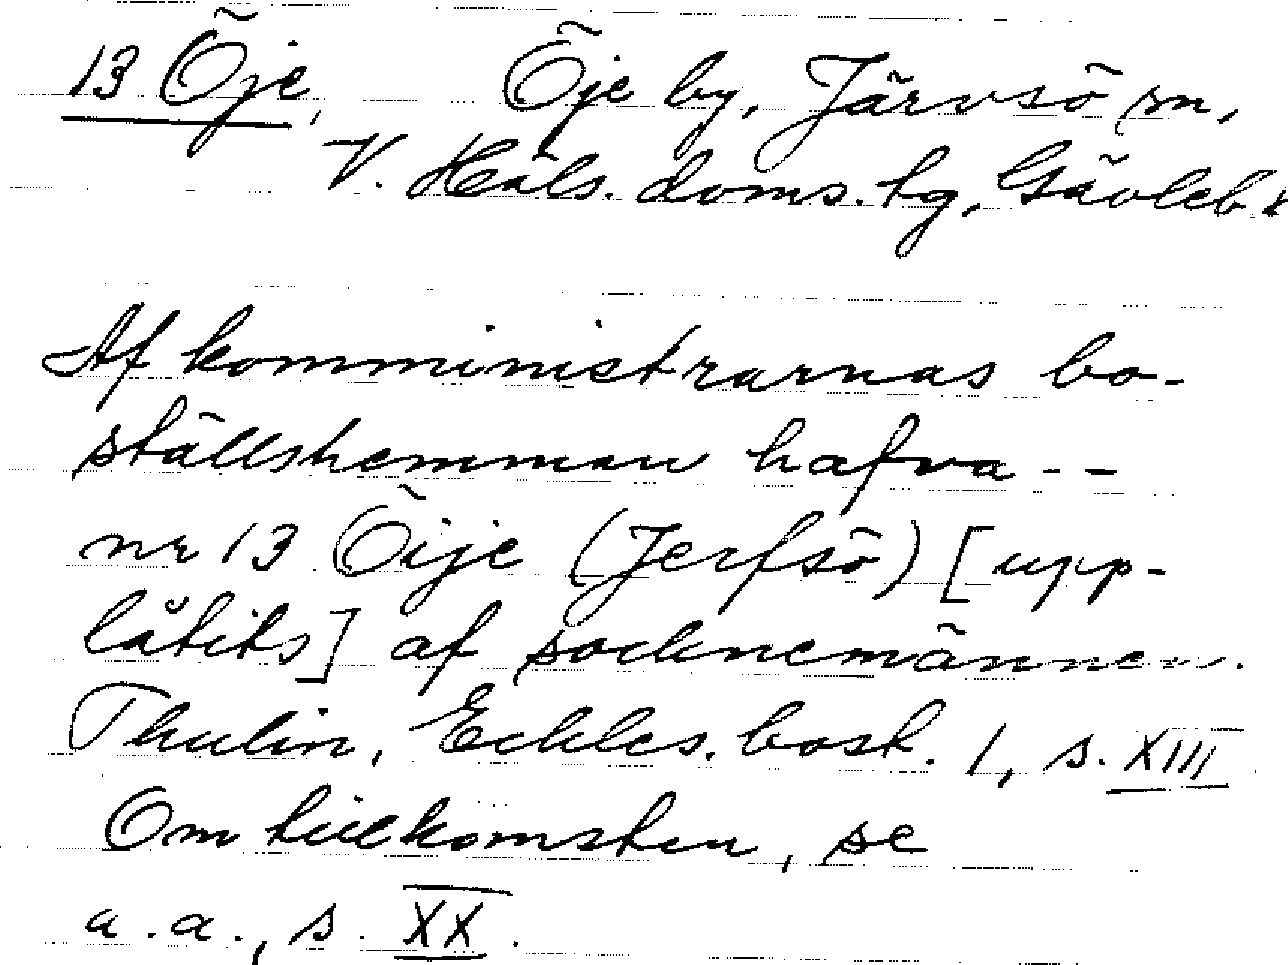 13 Öje, Öje by, Järvsö sn,
V. Häls. doms.hg, Gävleb. l
Af komministrarnas bo-
ställshemman hafva --
nr 13 Öije (Jerfsö) [upp-
låtits] af socknemännen.
Thulin, Eckles. bost. 1, s. XIII
Om tillkomsten, se
a.a., s. XX.